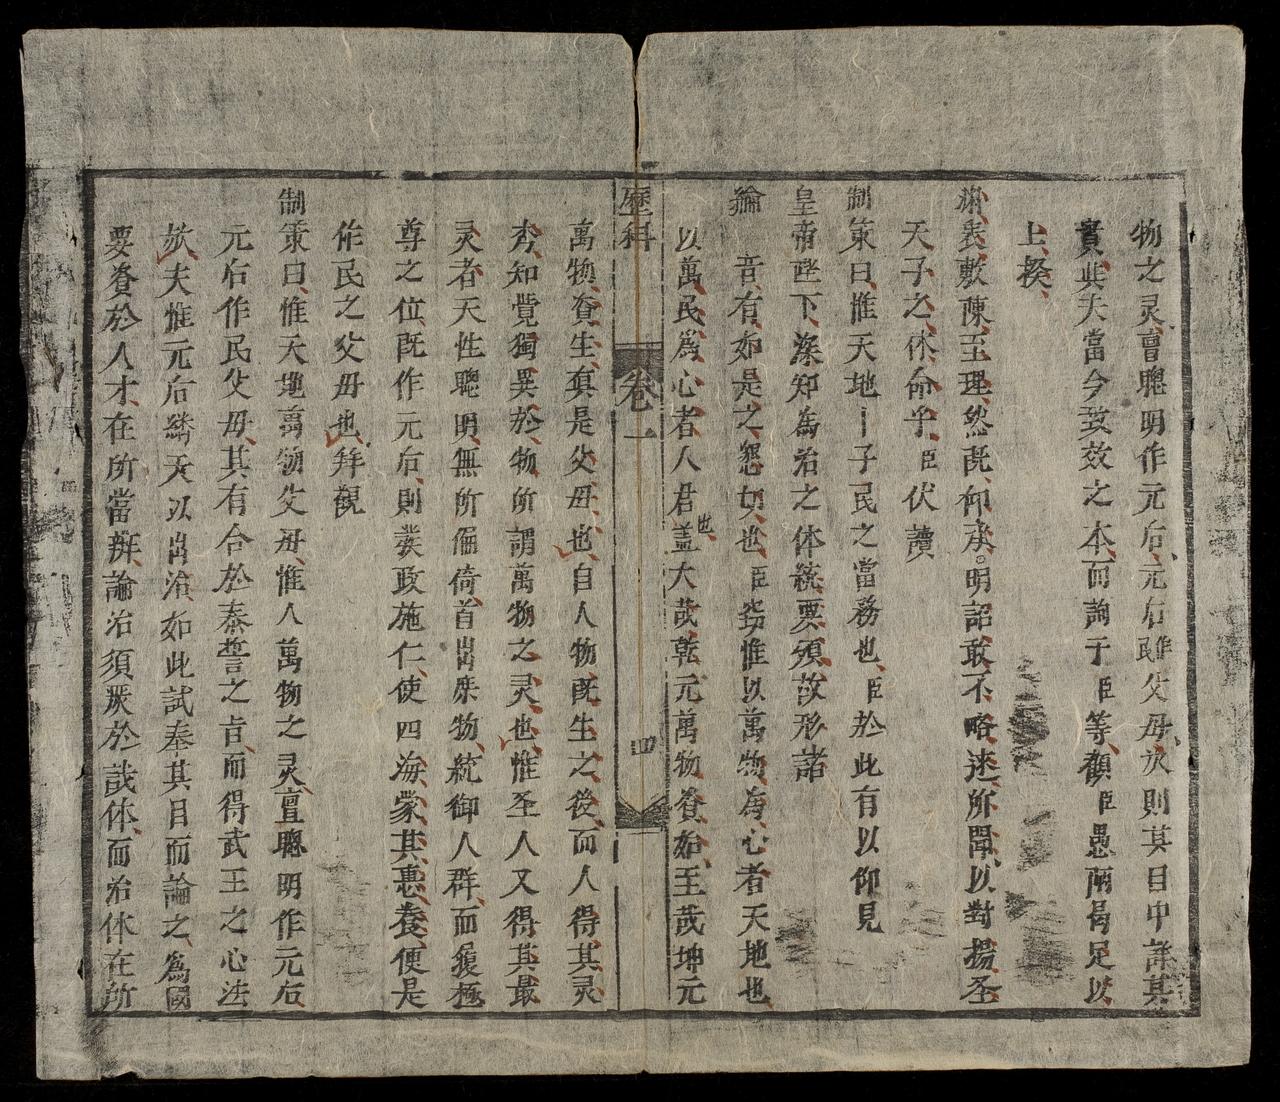 物之灵亶聰明作元后元后雖父母於則其目中詳其
實此夫當今致效之本而詢于臣等顧臣愚陋曷足以
上揆
淵衷敷陳至理然既仰承明詔敢不略述所聞以對揚圣
天子之休命乎臣伏讀
制策曰惟天地 子民之當務也臣於此有以仰見
皇帝陛下深知為治之体統要須故形諸
綸音有如是之懇切也臣窃惟以萬物為心者天地也
以萬民爲心者人君也盖大哉乾元萬物資始至哉坤元
歷科 卷一 四
萬物資生真是父母也自人物既生之後而人得其灵
秀知覺獨異於物所謂萬物之灵也惟圣人又得其最
灵者天性聰明無所偏倚首出庶物統御人群而履極
尊之位既作元后則發政施仁使四海蒙其惠養便是
作民之父母也拜觀
制策曰惟天地萬物父母惟人萬物之灵亶聰明作元后
元后作民父母其有合於泰誓之旨而得武王之心法
歟夫惟元后繼天以出治如此試奉其目而論之為國
要資於人才在所當辨論治須厥於哉体而治体在所